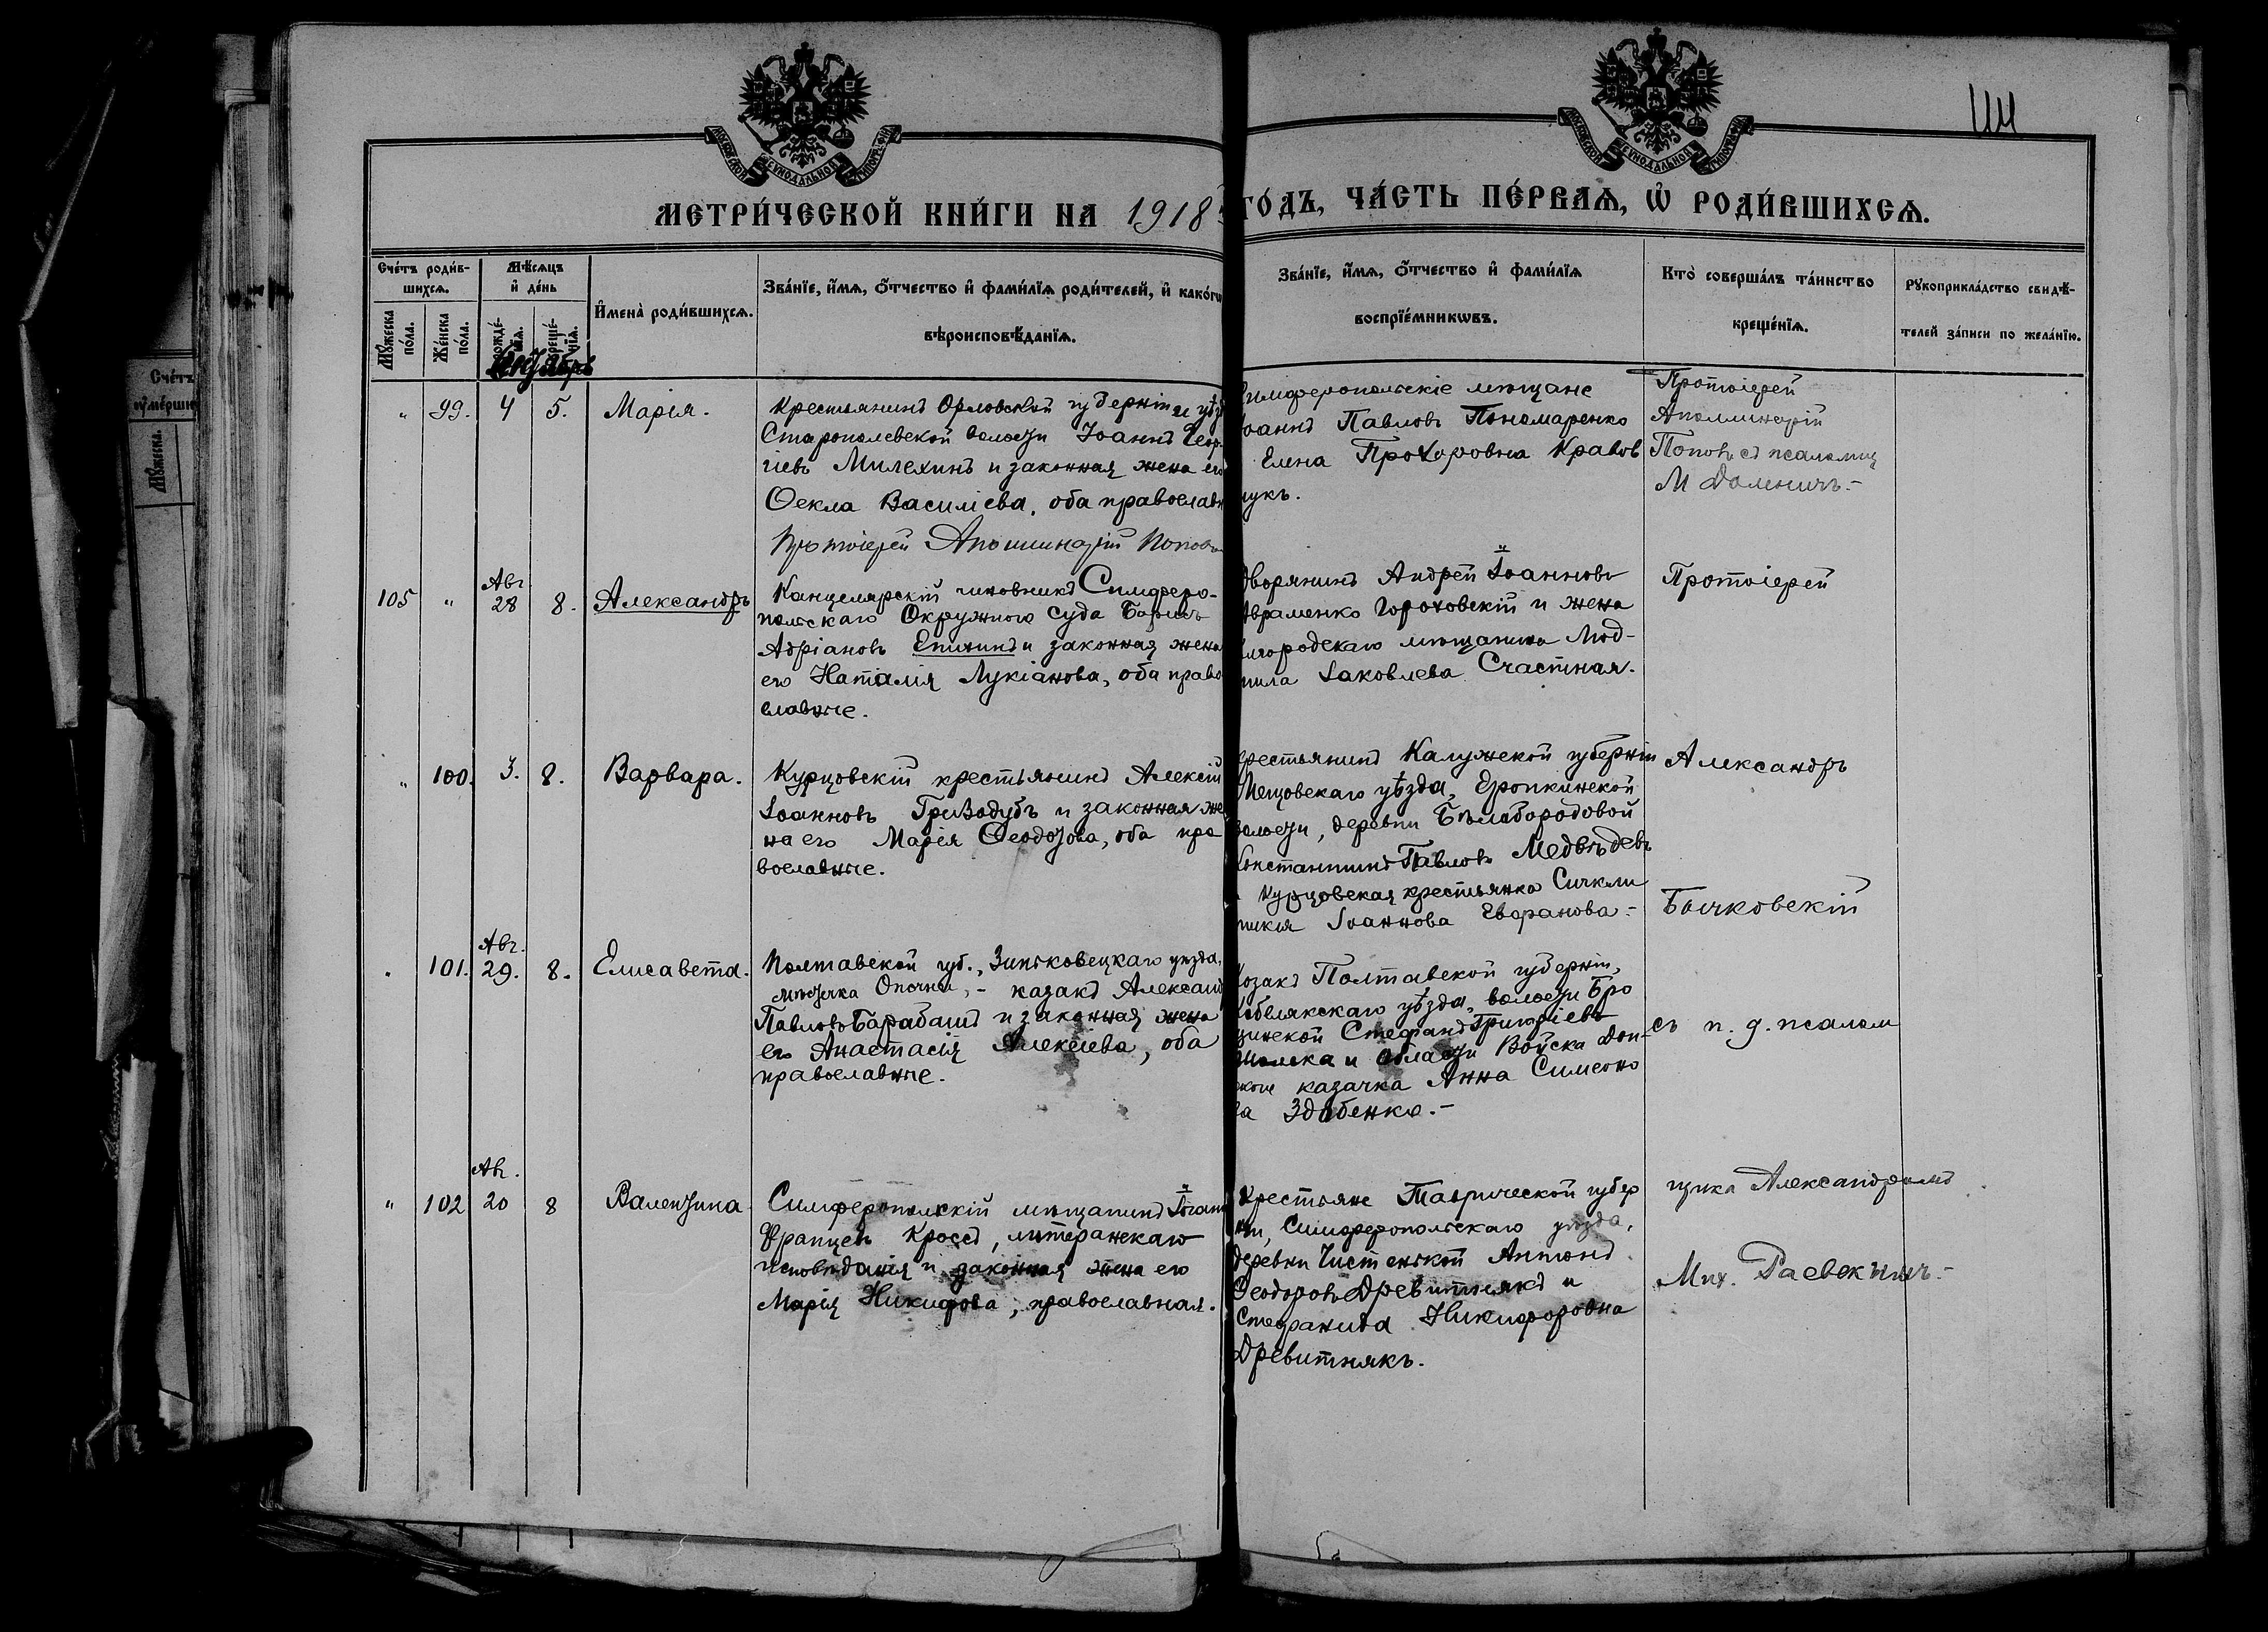 МОСКОВСКОЙ СѴНОДАЛЬНОЙ ТИПОГРАФІИ
МОСКОВСКОЙ СѴНОДАЛЬНОЙ ТИПОГРАФІИ
МЕТРИ́ЧЕСКОЙ КНИ́ГИ НА 1918
ГО́ДЪ, ЧА́СТЬ ПЕ́РВАЯ, Ѡ҆ РОДИ́ВШИХСЯ.
Сче́тъ роди́в-
шихся.
Мѣ́сяцъ
и҆ де́нь
Мꙋ́жеска
по́ла.
Же́нска
по́ла.
рожде́-
нїя.
креще́-
нїя.
И҆мена̀ роди́вшихся.
Зва́нїе, и҆́мя, ѻ҆́тчество и҆ фами́лїя роди́телей, и҆ како́гѡ
вѣроисповѣ́данїя.
Зва́нїе, и҆́мя, ѻ҆́тчество и҆ фами́лїя
воспрїе́мникѡвъ.
Кто̀ соверша́лъ та́инство
креще́нїя.
Рꙋкоприкла́дство свидѣ́-
телей за́писи по жела́нїю.
Сче́тъ
ᲂу҆ме́рши
Мꙋ́жеска.
„ 99. 4 5. Марія.
Крестьянинъ Орловской губерніи и уѣз
Старополевской волости Іоаннъ Геор-
гіевъ Милехинъ и законная жена его
Ѳекла Василіева, оба православн
Протоіерей Аполлинарій Поповъ
Симферопольскіе мѣщане
Іоаннъ Павловъ Пономаренко
Елена Прохоровна Кравов
чукъ.
Протоіерей
Аполлинарій
Поповъ съ псаломщ
М Доленичъ.-
105 „ Авг. 28 8. Александръ
Канцелярскій чиновникъ Симферо-
польскаго Окружного Суда Борисъ
Адріановъ Епихинъ и законная жена
его Наталія Лукіанова, оба право
славные.
Дворянинъ Андрей Іоанновъ
Авраменко Гороховскій и жена
мѣщанина Люд-
мила Іаковлева Счастная.
Протоіерей
„ 100. 3. 8. Варвара.
Курцовскій крестьянинъ Алексій
Іоанновъ Гривадубъ и законная же
на его Марія Ѳеодозова, оба пра
вославные.
Крестьянинъ Калужской губерніи
Мещовскаго уѣзда, Еропкинской
волости, деревни Бѣлобородовой
Константинъ Павловъ Медвѣдевъ
Курцовская крестьянка
Іоаннова
Александръ
Бычковскій
„ 101. Авг. 29. 8. Елисавета.
Полтавской губ., Зиньковецкаго уѣзда,
мѣстечка Опочни,- казакъ Александ
Павловъ Барабашъ и законная жена
его Анастасія Алексіева, оба
православные.
Козакъ Полтавской губерніи,
Кобелякскаго уѣзда, волости Бро
Стефанъ Григоріевъ
и области Войска Дон-
казачка Анна Симеоно
ва Здобенко.-
съ и. д. псалом
„ 102 Авг. 20 8 Валентина
Симферопольскій мѣщанинъ Іоанн
Францевъ Кроссъ, лютеранскаго
исповѣданія и законная жена его
Марія Никифова, православная.
Крестьяне Таврической губер
ніи, Симферопольскаго уѣзда,
деревни Чистенькой Антонъ
Ѳеодоровъ Древитнякъ и
Стефанида Никифоровна
Древитнякъ.
щика Александромъ
Мих. Раевскимъ.-